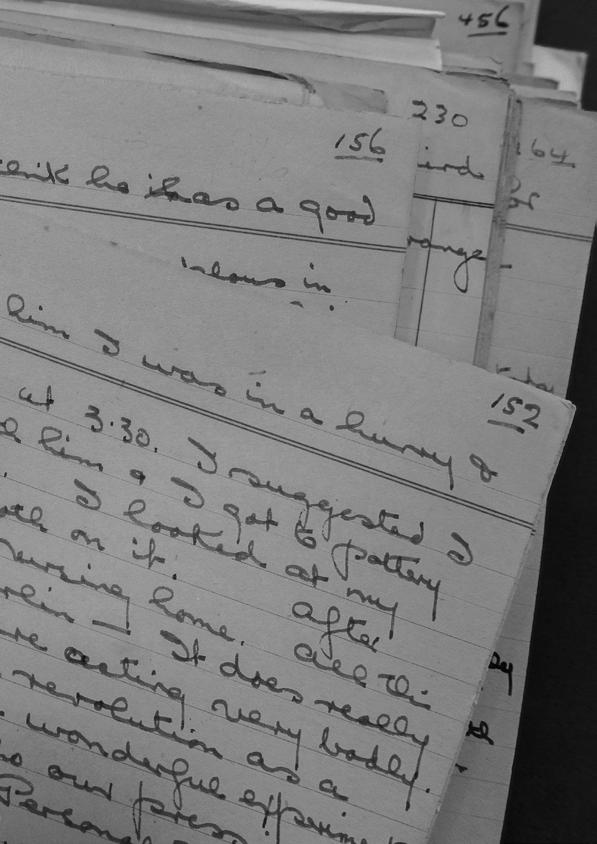 456
230
164
156
think he has a good
range
in
152
him I was in a hurry &
at 3.30. I suggested I
him & I got to pottery
I looked at my
on it. after
nursing home. all this
It does really
are acting very badly.
revolution as a
wonderful experiment
our press!
Personal